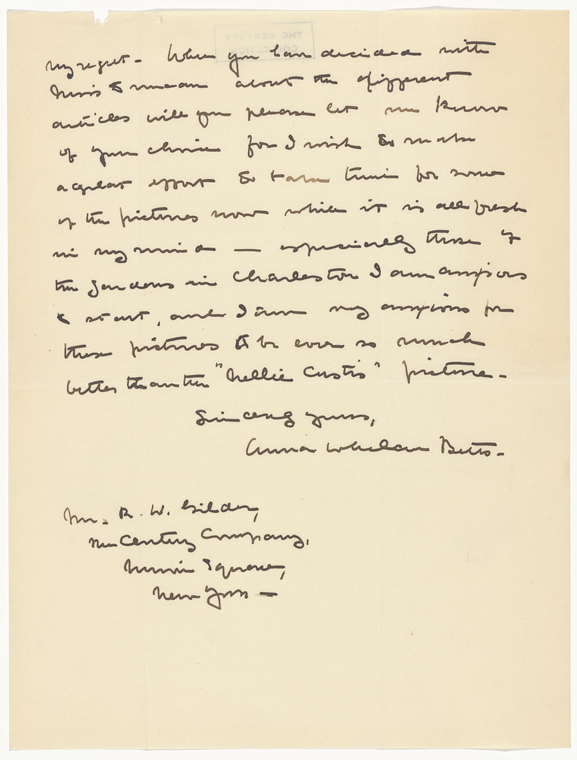 my regret - When you have decided with
Miss about the different
articles will you please let me know
of your choice for I wish to make
a great effort to take time for some
of the pictures now while it is all fresh
in my mind — especially those of
the gardens in Charleston I am anxious
to start, and I am very anxious for
these pictures to be ever so much
better than the "Nellie Custis" picture -
Sincerely yours,
Anna Whelan Betts -
Mr. R. W. Gilder,
The Century Company,
Union Square,
New York —